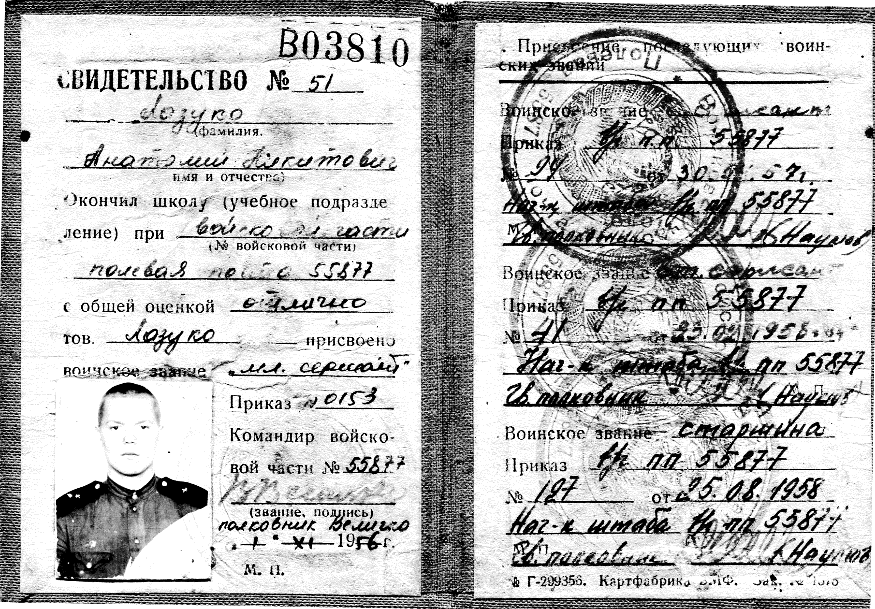 В03810
СВИДЕТЕЛЬСТВО № 51
Лозуко
(фамилия.
Анатолий Никитович
имя и отчество)
Окончил школу (учебное подразде
ление) при войсковой части
(№ войсковой части)
полевая почта 55877
с общей оценкой отлично
тов. Лозуко присвоено
воинское звание „мл. сержант"
Приказ № 0153
Командир войско-
вой части № 55877
(звание, подпись)
полковник Величко
„1" XI 1956 г.
М. П.
Присвоение последующих воин-
ских званий
Воинское звание сержант
Приказ вч пп 55877
№ 99 от 30. 57г.
Нач-к штаба вч пп 55877
Гв. полковник Наумов
Воинское звание ст. сержант
Приказ вч пп 55877
№ 41 от 23.02.1958
Нач-к штаба вч пп 55877
Гв. полковник Наумов
Воинское звание старшина
Приказ вч пп 55877
№ 127 от 25.08.1958
Нач-к штаба вч пп 55877
Гв. полковник Наумов
Г-299356. Картфабрика ВМФ. Зак. №